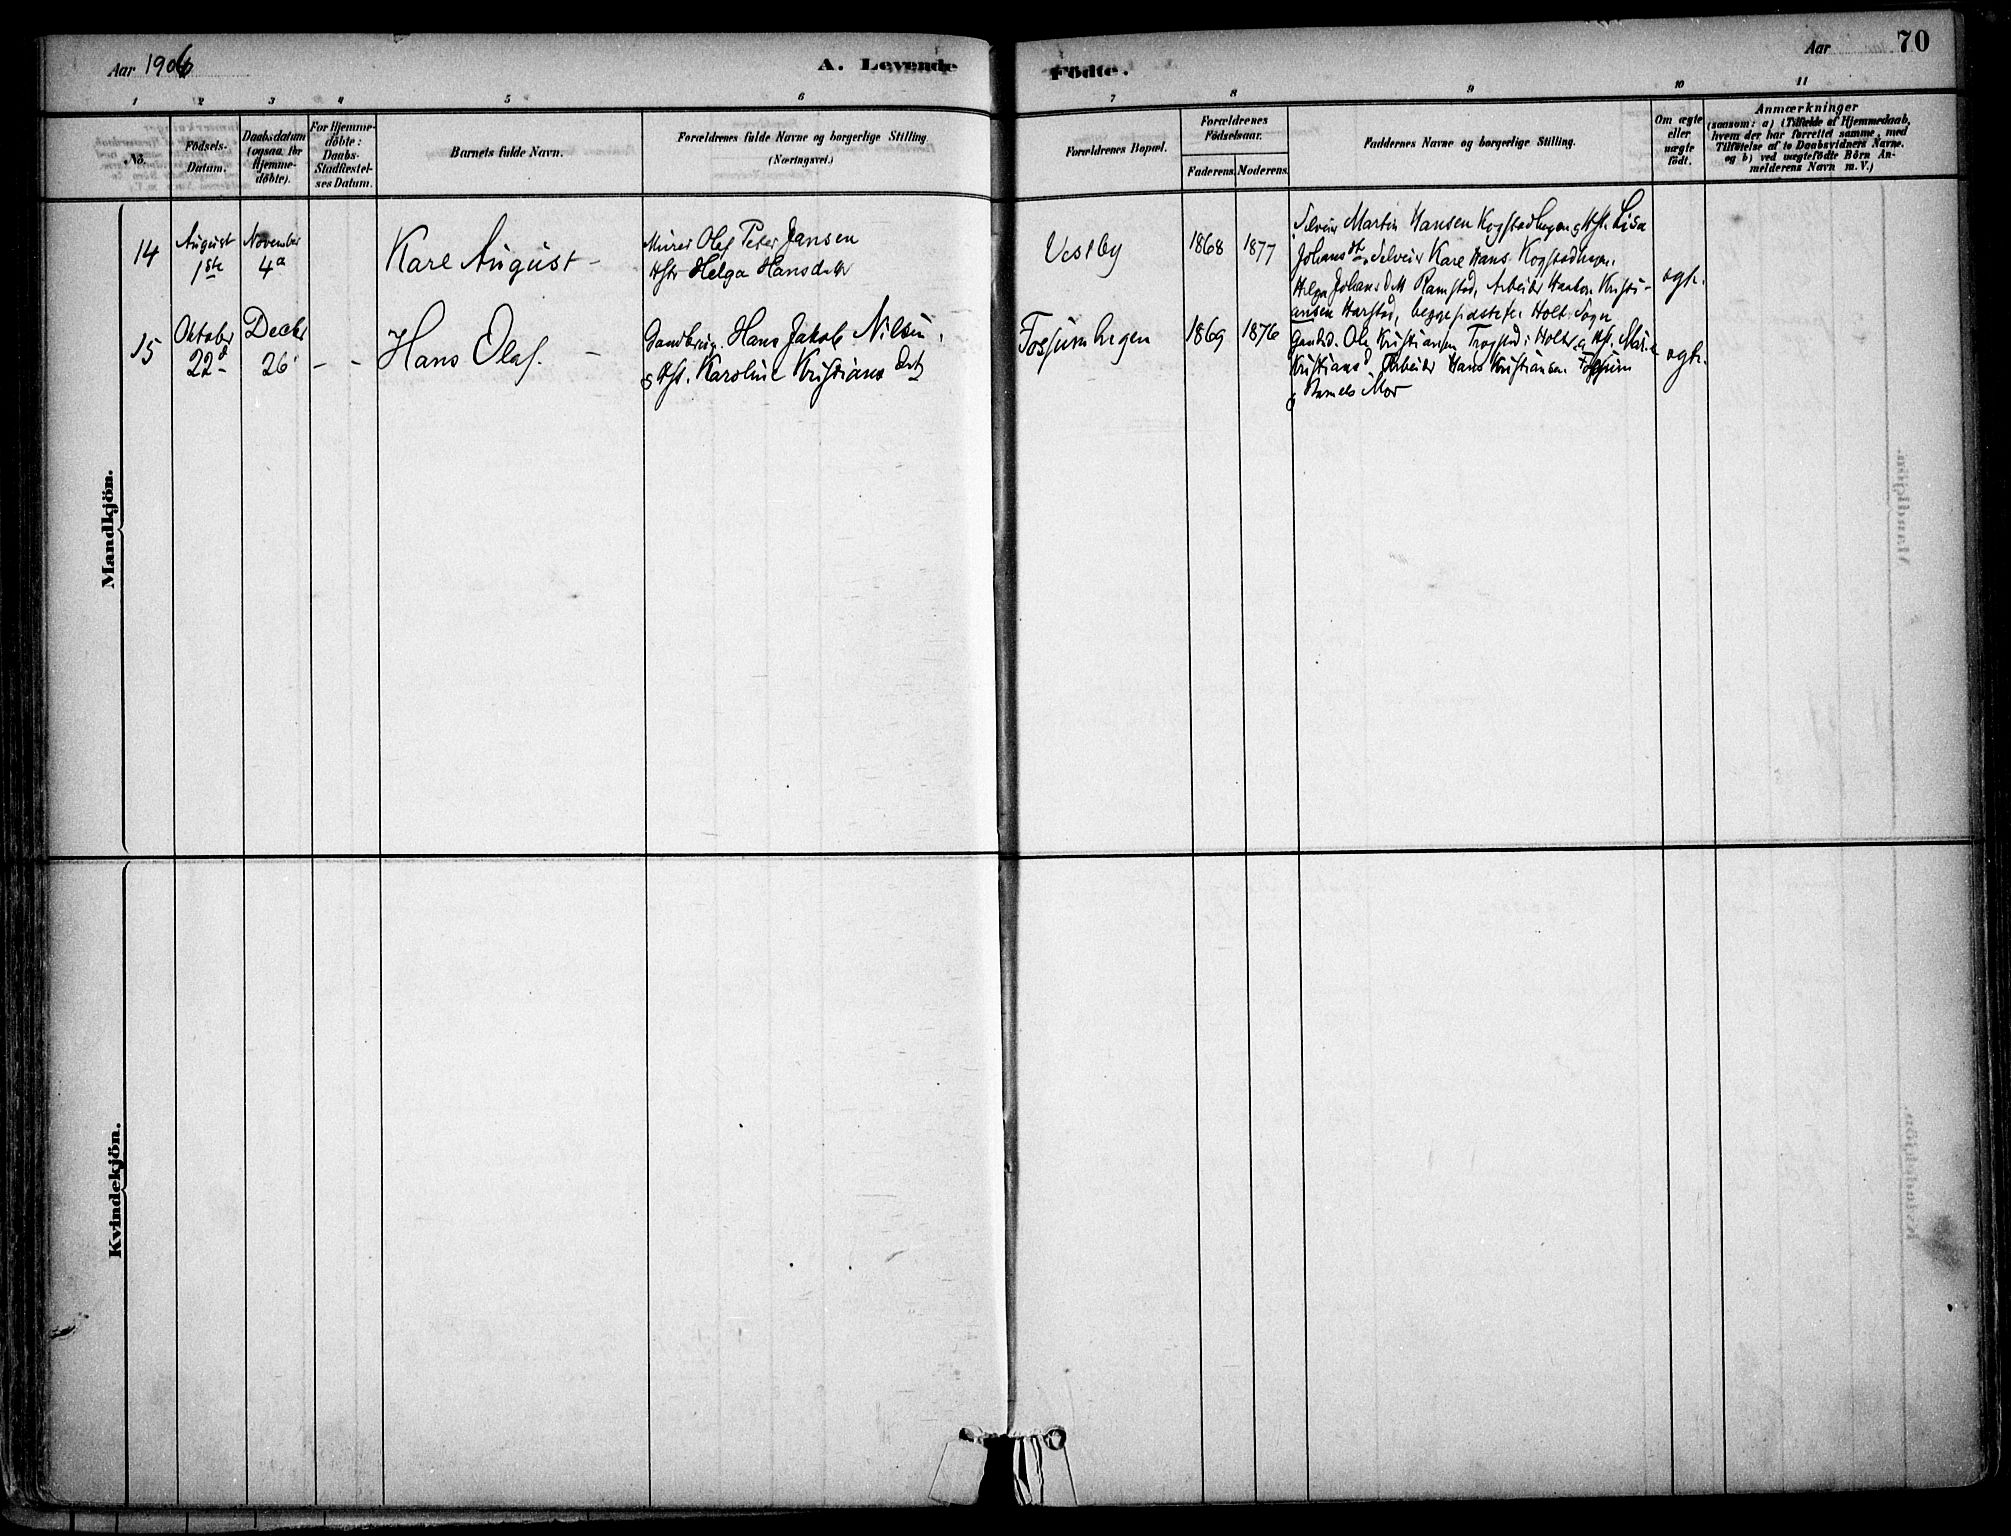 Aar 1906
A. Levende
Födte.
Aar
70
1 2 3 4 5 6 7 8 9 10 11
No.
Födsels-
Datum.
Daabsdatum
(ogsaa for
Hjemme-
døbte).
For Hjemme-
döbte:
Daabs-
Stadfæstel-
ses Datum.
Barnets fulde Navn.
Forældrenes fulde Navne og borgerlige Stilling
(Næringsvei.)
Forældrenes Bopæl.
Forældrenes
Födselsaar.
Faderens.
Moderens.
Faddernes Navne og borgerlige Stilling.
Om ægte
eller
uægte
födt.
Anmærkninger
(saasom: a) (Tilfælde af Hjemmedaab,
hvem der har forrettet samme, med
Tilföielse af to Daabsvidners Navne.
og b) ved uægtefödte Börn An-
melderens Navn m.V.)
Mandkjön.
14
August
1ste
November
4a
Kare August -
Murer Olaf Peter Jansen
Helga Hansdatter
Vestby
1868
1877
Martin Hansen Lisa
Johansdt. Kare Hans.
Helga Johansdatt Ramstad, Arbeider Haakon Kristi-
ansen Harstad, Holt Sogn
ægte.
15
Oktober
22d
Decbr
26
- -
Hans Olaf. -
Gaardbrug. Hans Jakob Nilsen,
Karoline Kristians Datt
Fossumhagen
1869
1876
Ole Kristiansen Trogstad i Holt Marie
Kristiansd Arbeider Hans Kristiansen Fossum
Barnets Mor
ægte.
Kvindekjön.